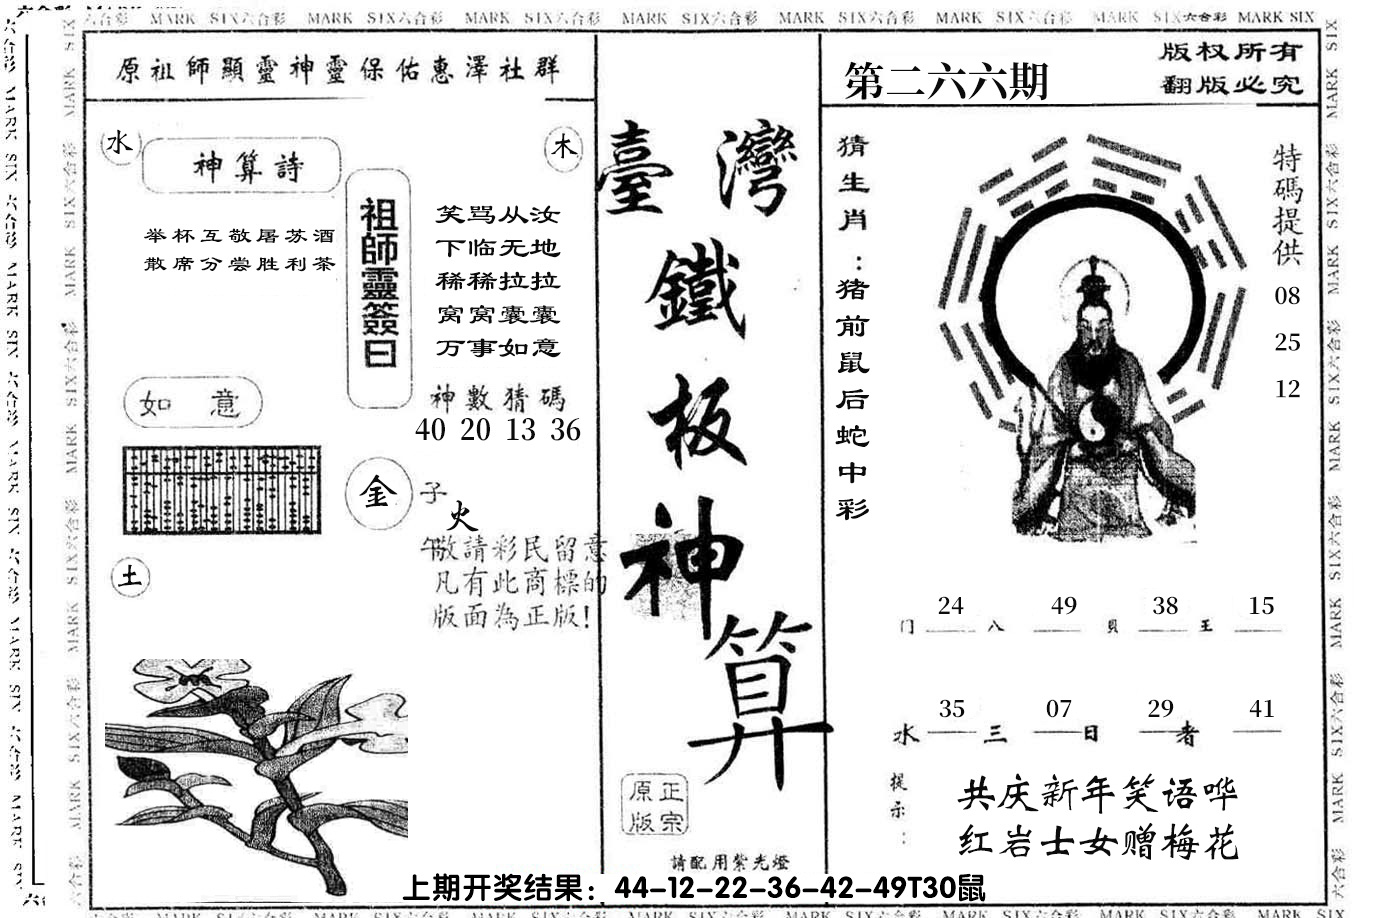 六合彩 MARK SIX六合彩 MARK SIX六合彩 MARK SIX六合彩 MARK SIX六合彩 MARK SIX六合彩 MARK SIX六合彩 MARK SIX六合彩 MARK SIX
原祖師顯靈神靈保佑惠澤社群
水
神算詩
木
举杯互敬屠苏酒
散席分尝胜利茶
祖師靈簽曰
笑骂从汝
下临无地
稀稀拉拉
窝窝囊囊
万事如意
神數猜碼
40 20 13 36
如 意
金
子
火
午
敬請彩民留意
凡有此商標的
版面為正版！
土
臺灣
鐵
板
神
算
原正
版宗
請配用紫光燈
第二六六期
版权所有
翻版必究
猜生肖：猪前鼠后蛇中彩
特碼提供
08
25
12
24 49 38 15
门 八 貝 王
35 07 29 41
水 三 日 者
提示：
共庆新年笑语哗
红岩士女赠梅花
上期开奖结果：44-12-22-36-42-49T30鼠